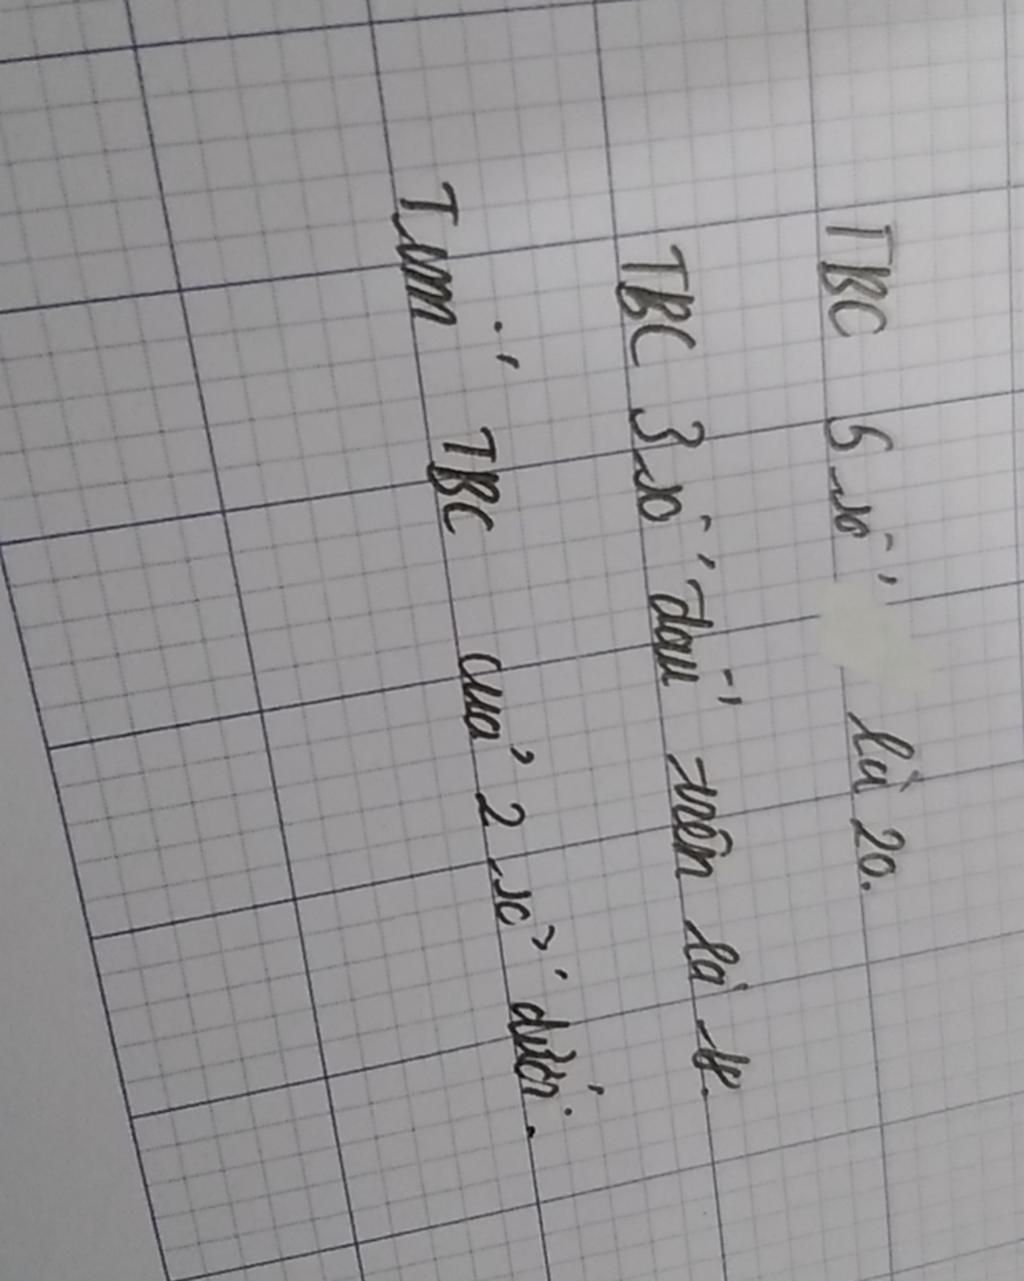 TBC 5 số là 20.
TBC 3 số đầu tiên là 18.
Tìm TBC của 2 số dưới.